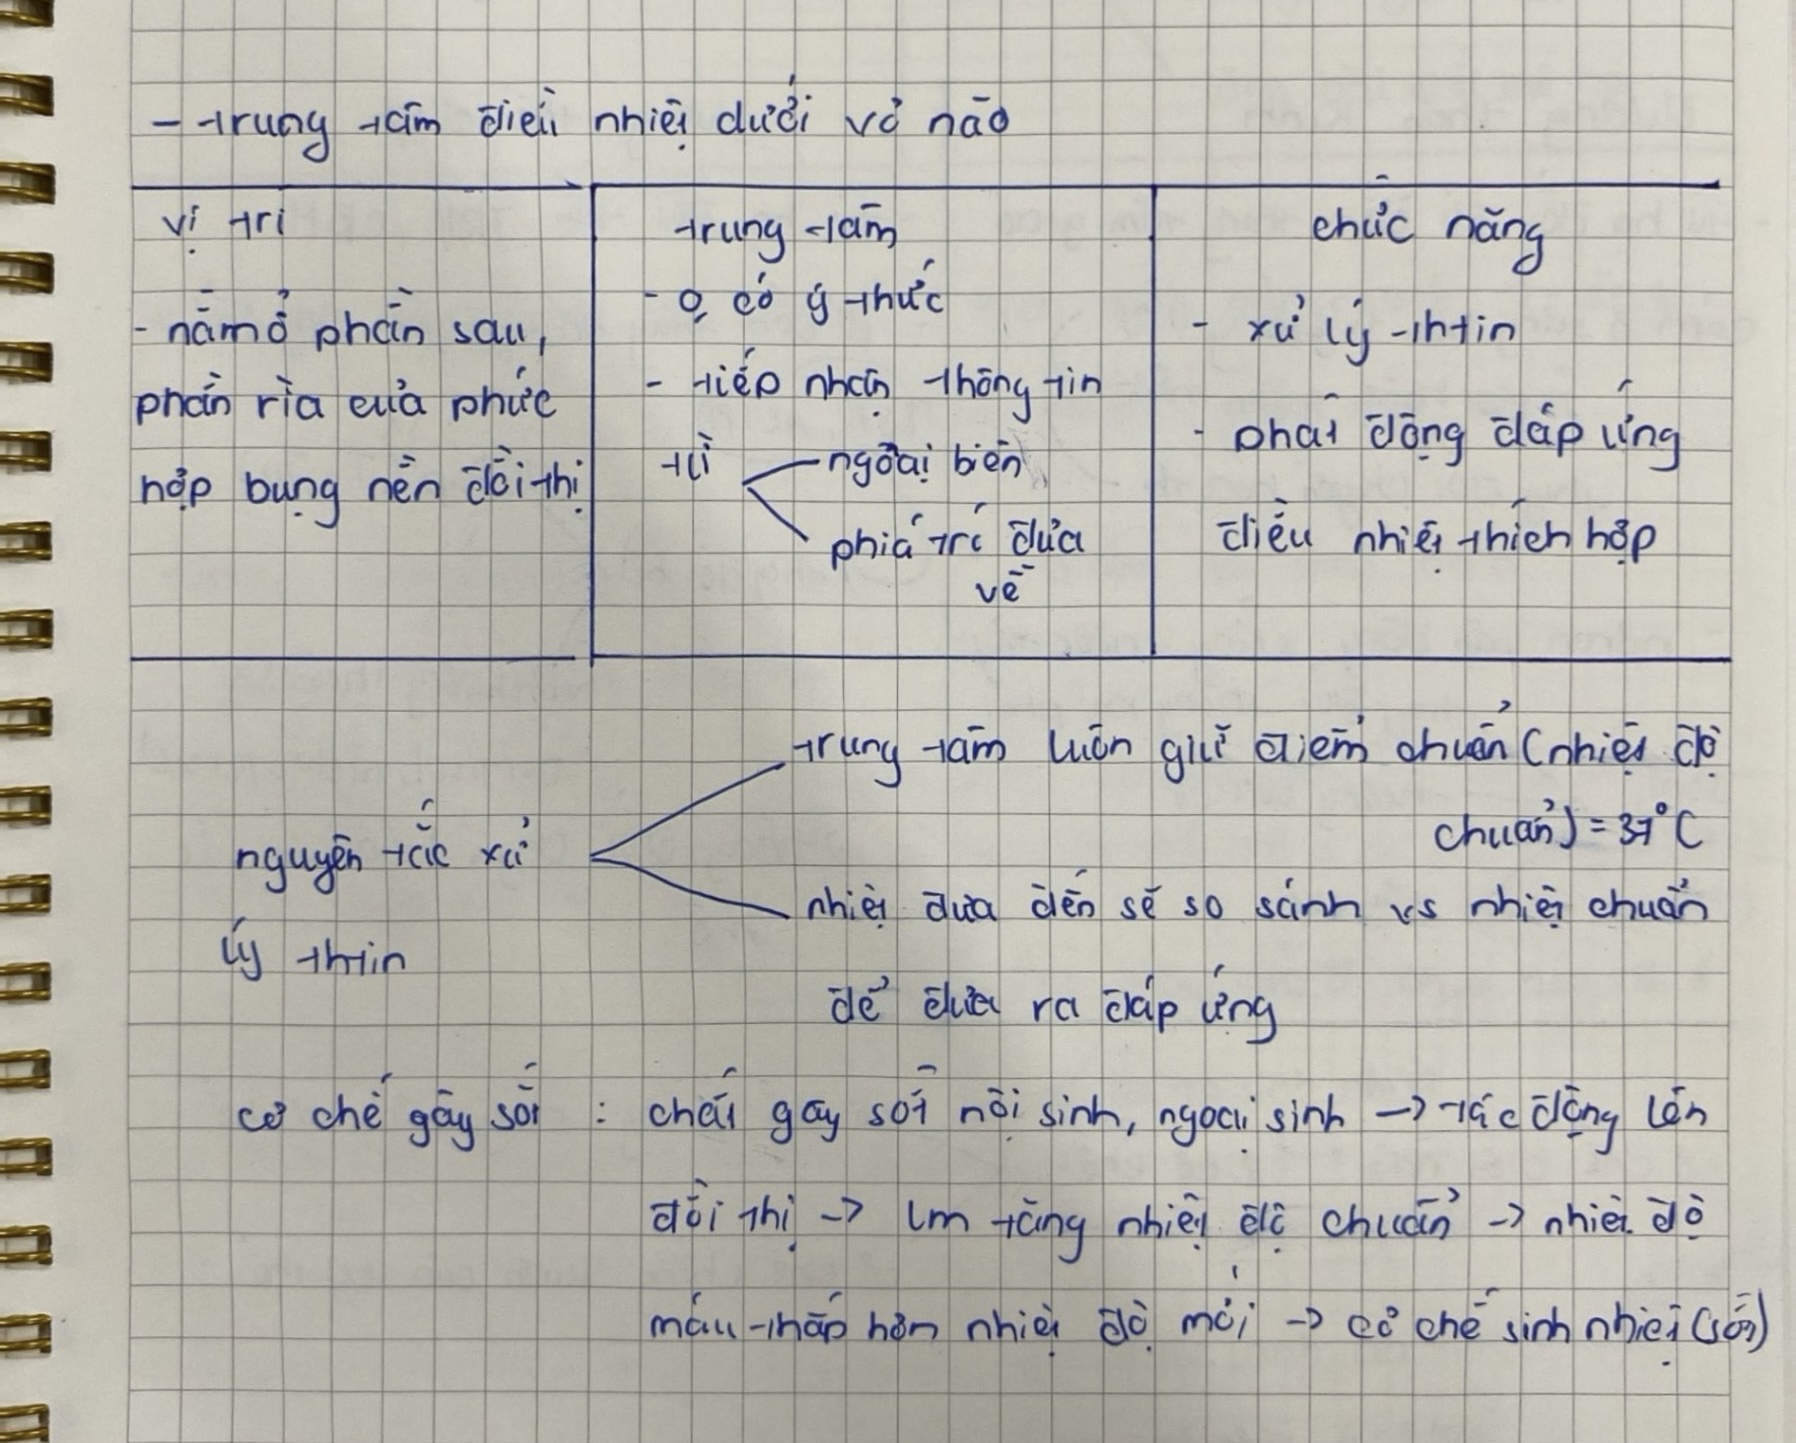 - trung tâm điều nhiệt dưới vỏ não
vị trí
- nằm ở phần sau,
phần rìa của phức
hợp bụng nền đồi thị
trung tâm
- ko có ý thức
- tiếp nhận thông tin
từ
ngoại biên
phía trc đưa
về
chức năng
- xử lý thtin
- phát động đáp ứng
điều nhiệt thích hợp
nguyên tắc xử
lý thtin
trung tâm luôn giữ điểm chuẩn (nhiệt độ
chuẩn) = 37°C
nhiệt đưa đến sẽ so sánh vs nhiệt chuẩn
để đưa ra đáp ứng
cơ chế gây sốt : chất gây sốt nội sinh, ngoại sinh -> tác động lên
đồi thị -> lm tăng nhiệt độ chuẩn -> nhiệt độ
máu thấp hơn nhiệt độ mới -> cơ chế sinh nhiệt (sốt)